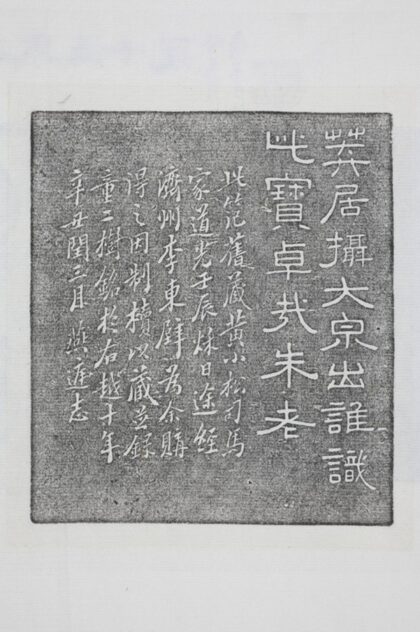 莽居攝大泉出誰識
此寶卓哉朱老
此笵舊藏黃小松司馬
家道光壬辰秌日途經
濟州李東屏為介購
得之因制櫝以藏並錄
童二樹銘於右越十年
辛丑閏三月燕庭志